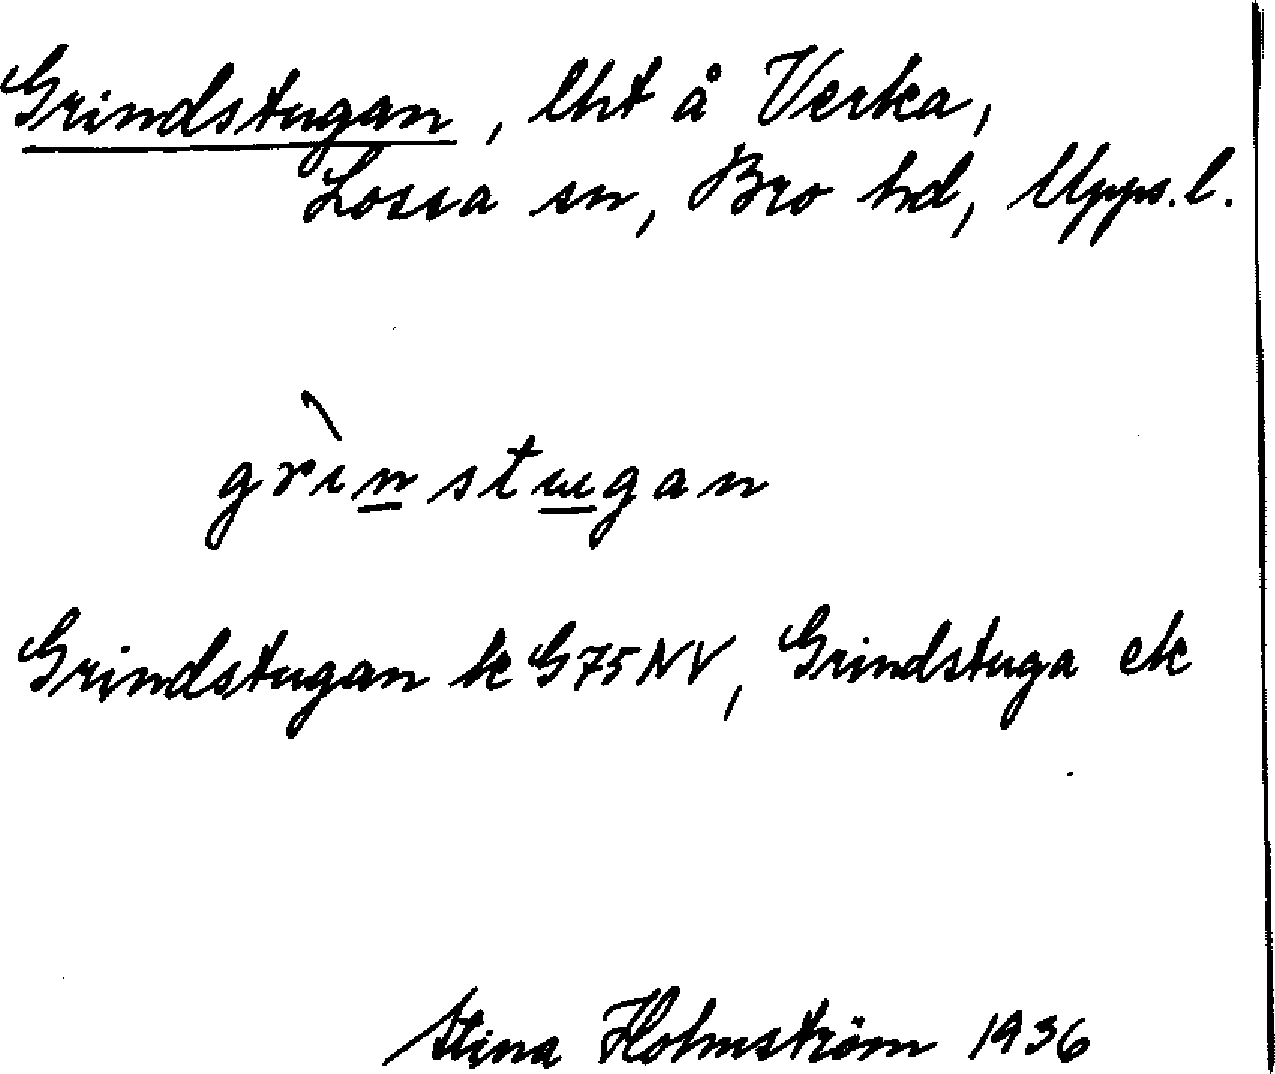 Grindstugan, lht å Verka,
Lossa sn, Bro hd, Upps.l.
grìnstɯgan
Grindstugan k G75NV, Grindstuga ek
Stina Holmström 1936